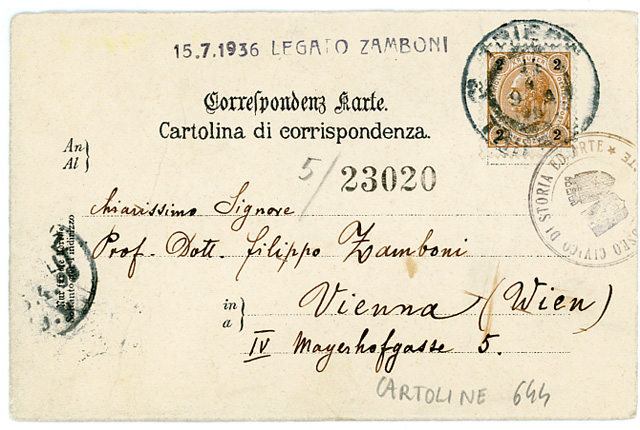 15.7.1936 LEGATO ZAMBONI
TRIEST
2 2
2 2
Correspondenz Karte.
Cartolina di corrispondenza.
An
Al
5/ 23020
CIVICO DI STORIA ED ARTE
chiarissimo Signore
Prof. Dott. Filippo Zamboni
in
a
Vienna (Wien)
IV Mayerhofgasse 5.
CARTOLINE 644